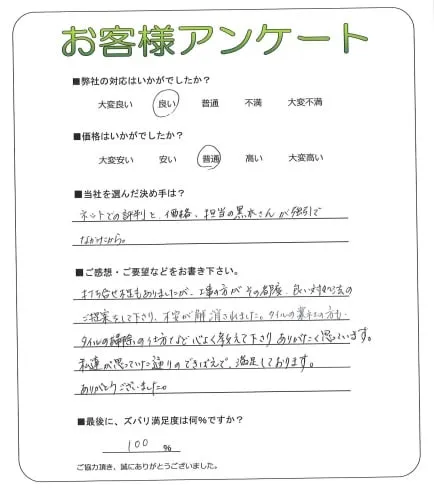 お客様アンケート
■弊社の対応はいかがでしたか？
大変良い 良い 普通 不満 大変不満
■価格はいかがでしたか？
大変安い 安い 普通 高い 大変高い
■当社を選んだ決め手は？
ネットでの評判と、価格、担当の黒木さんが強引で
なかったから。
■ご感想・ご要望などをお書き下さい。
打ち合せ不足もありましたが、工事の方がその都度、良い対処法の
ご提案をして下さり、不安が解消されました。タイルの業社の方も
タイルの掃除の仕方など心よく教えて下さりありがたく思っています。
私達が思っていた通りのできばえで、満足しております。
ありがとうございました。
■最後に、ズバリ満足度は何%ですか？
100 %
ご協力頂き、誠にありがとうございました。